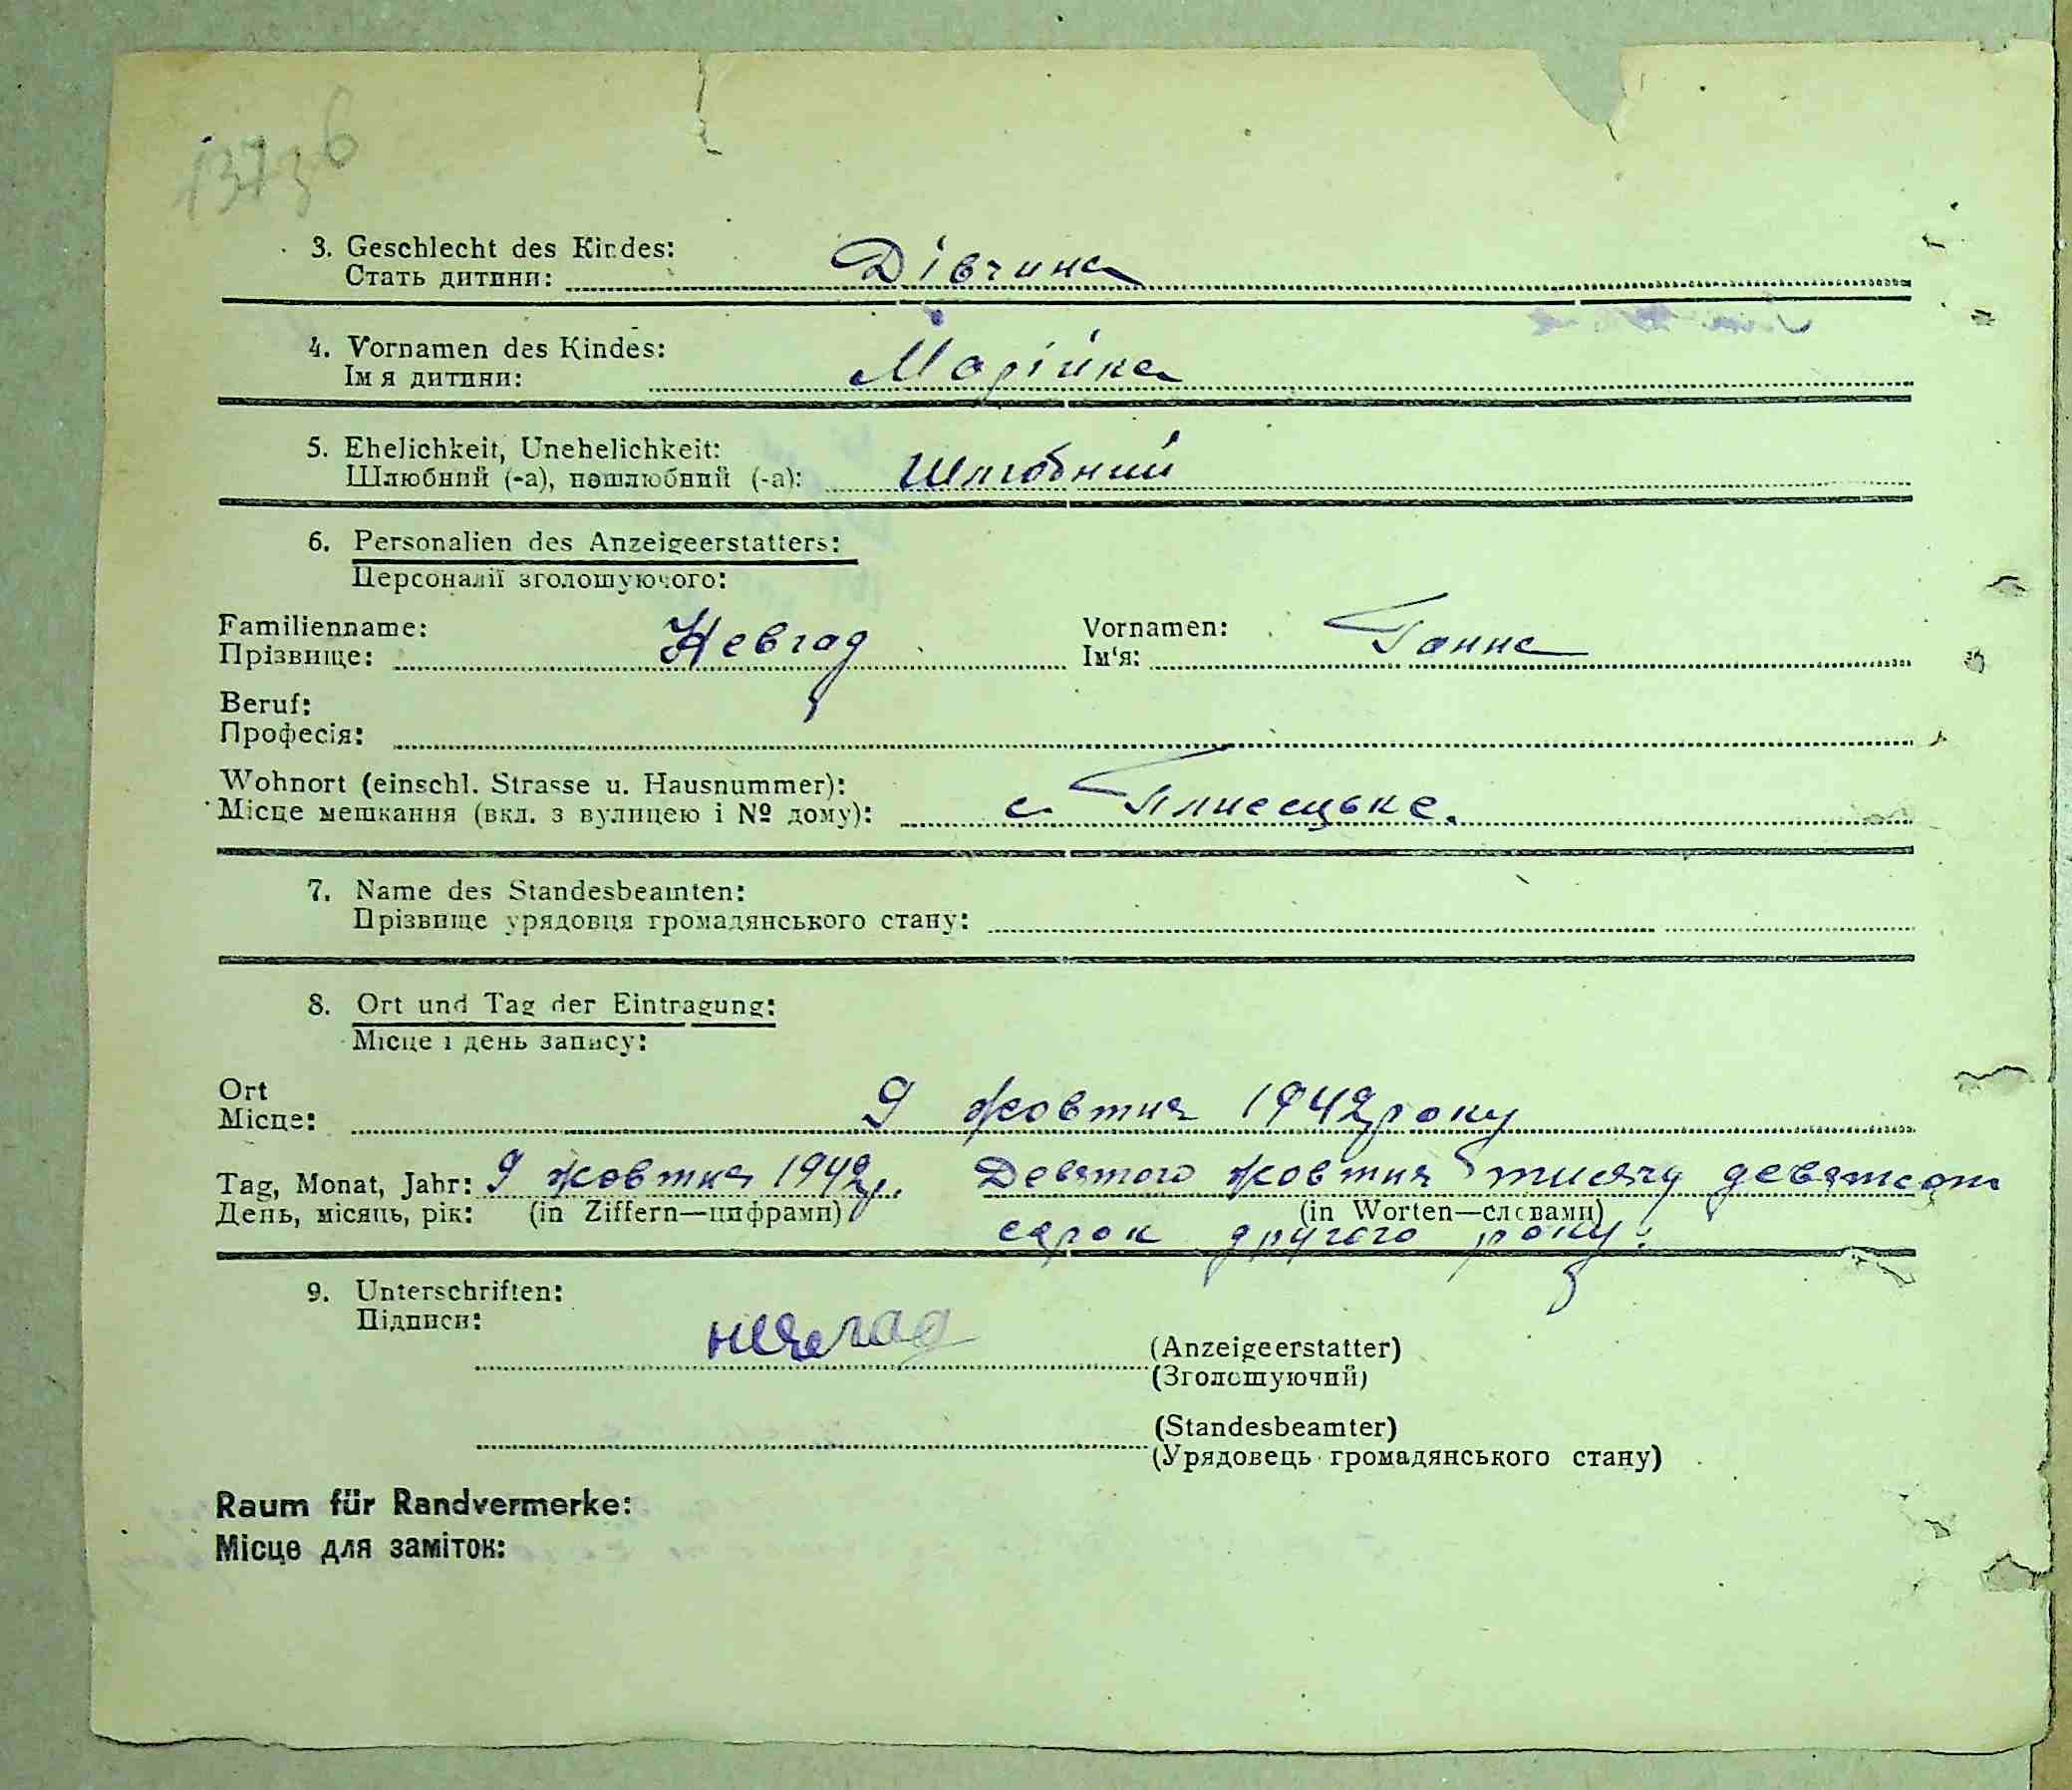 1373б
3. Geschlecht des Kindes:
Стать дитини: Дівчина
4. Vornamen des Kindes:
Імя дитини: Марійка
5. Ehelichkeit, Unehelichkeit:
Шлюбний (-а), нешлюбний (-а): Шлюбний
6. Personalien des Anzeigeerstatters:
Персоналії зголошуючого:
Familienname: Vornamen:
Прізвище: Невгад Ім'я: Ганна
Beruf:
Професія:
Wohnort (einschl. Strasse u. Hausnummer):
Місце мешкання (вкл. з вулицею і № дому): с. Плисецьке.
7. Name des Standesbeamten:
Прізвище урядовця громадянського стану:
8. Ort und Tag der Eintragung:
Місце і день запису:
Ort
Місце: 9 жовтня 1942 року
Tag, Monat, Jahr: 9 жовтня 1942 р. Девятого жовтня тисячу девятсот
День, місяць, рік: (in Ziffern—цифрами) (in Worten—словами)
сорок другого року.
9. Unterschriften:
Підписи:
(Anzeigeerstatter)
(Зголошуючий)
(Standesbeamter)
(Урядовець громадянського стану)
Raum für Randvermerke:
Місце для заміток: